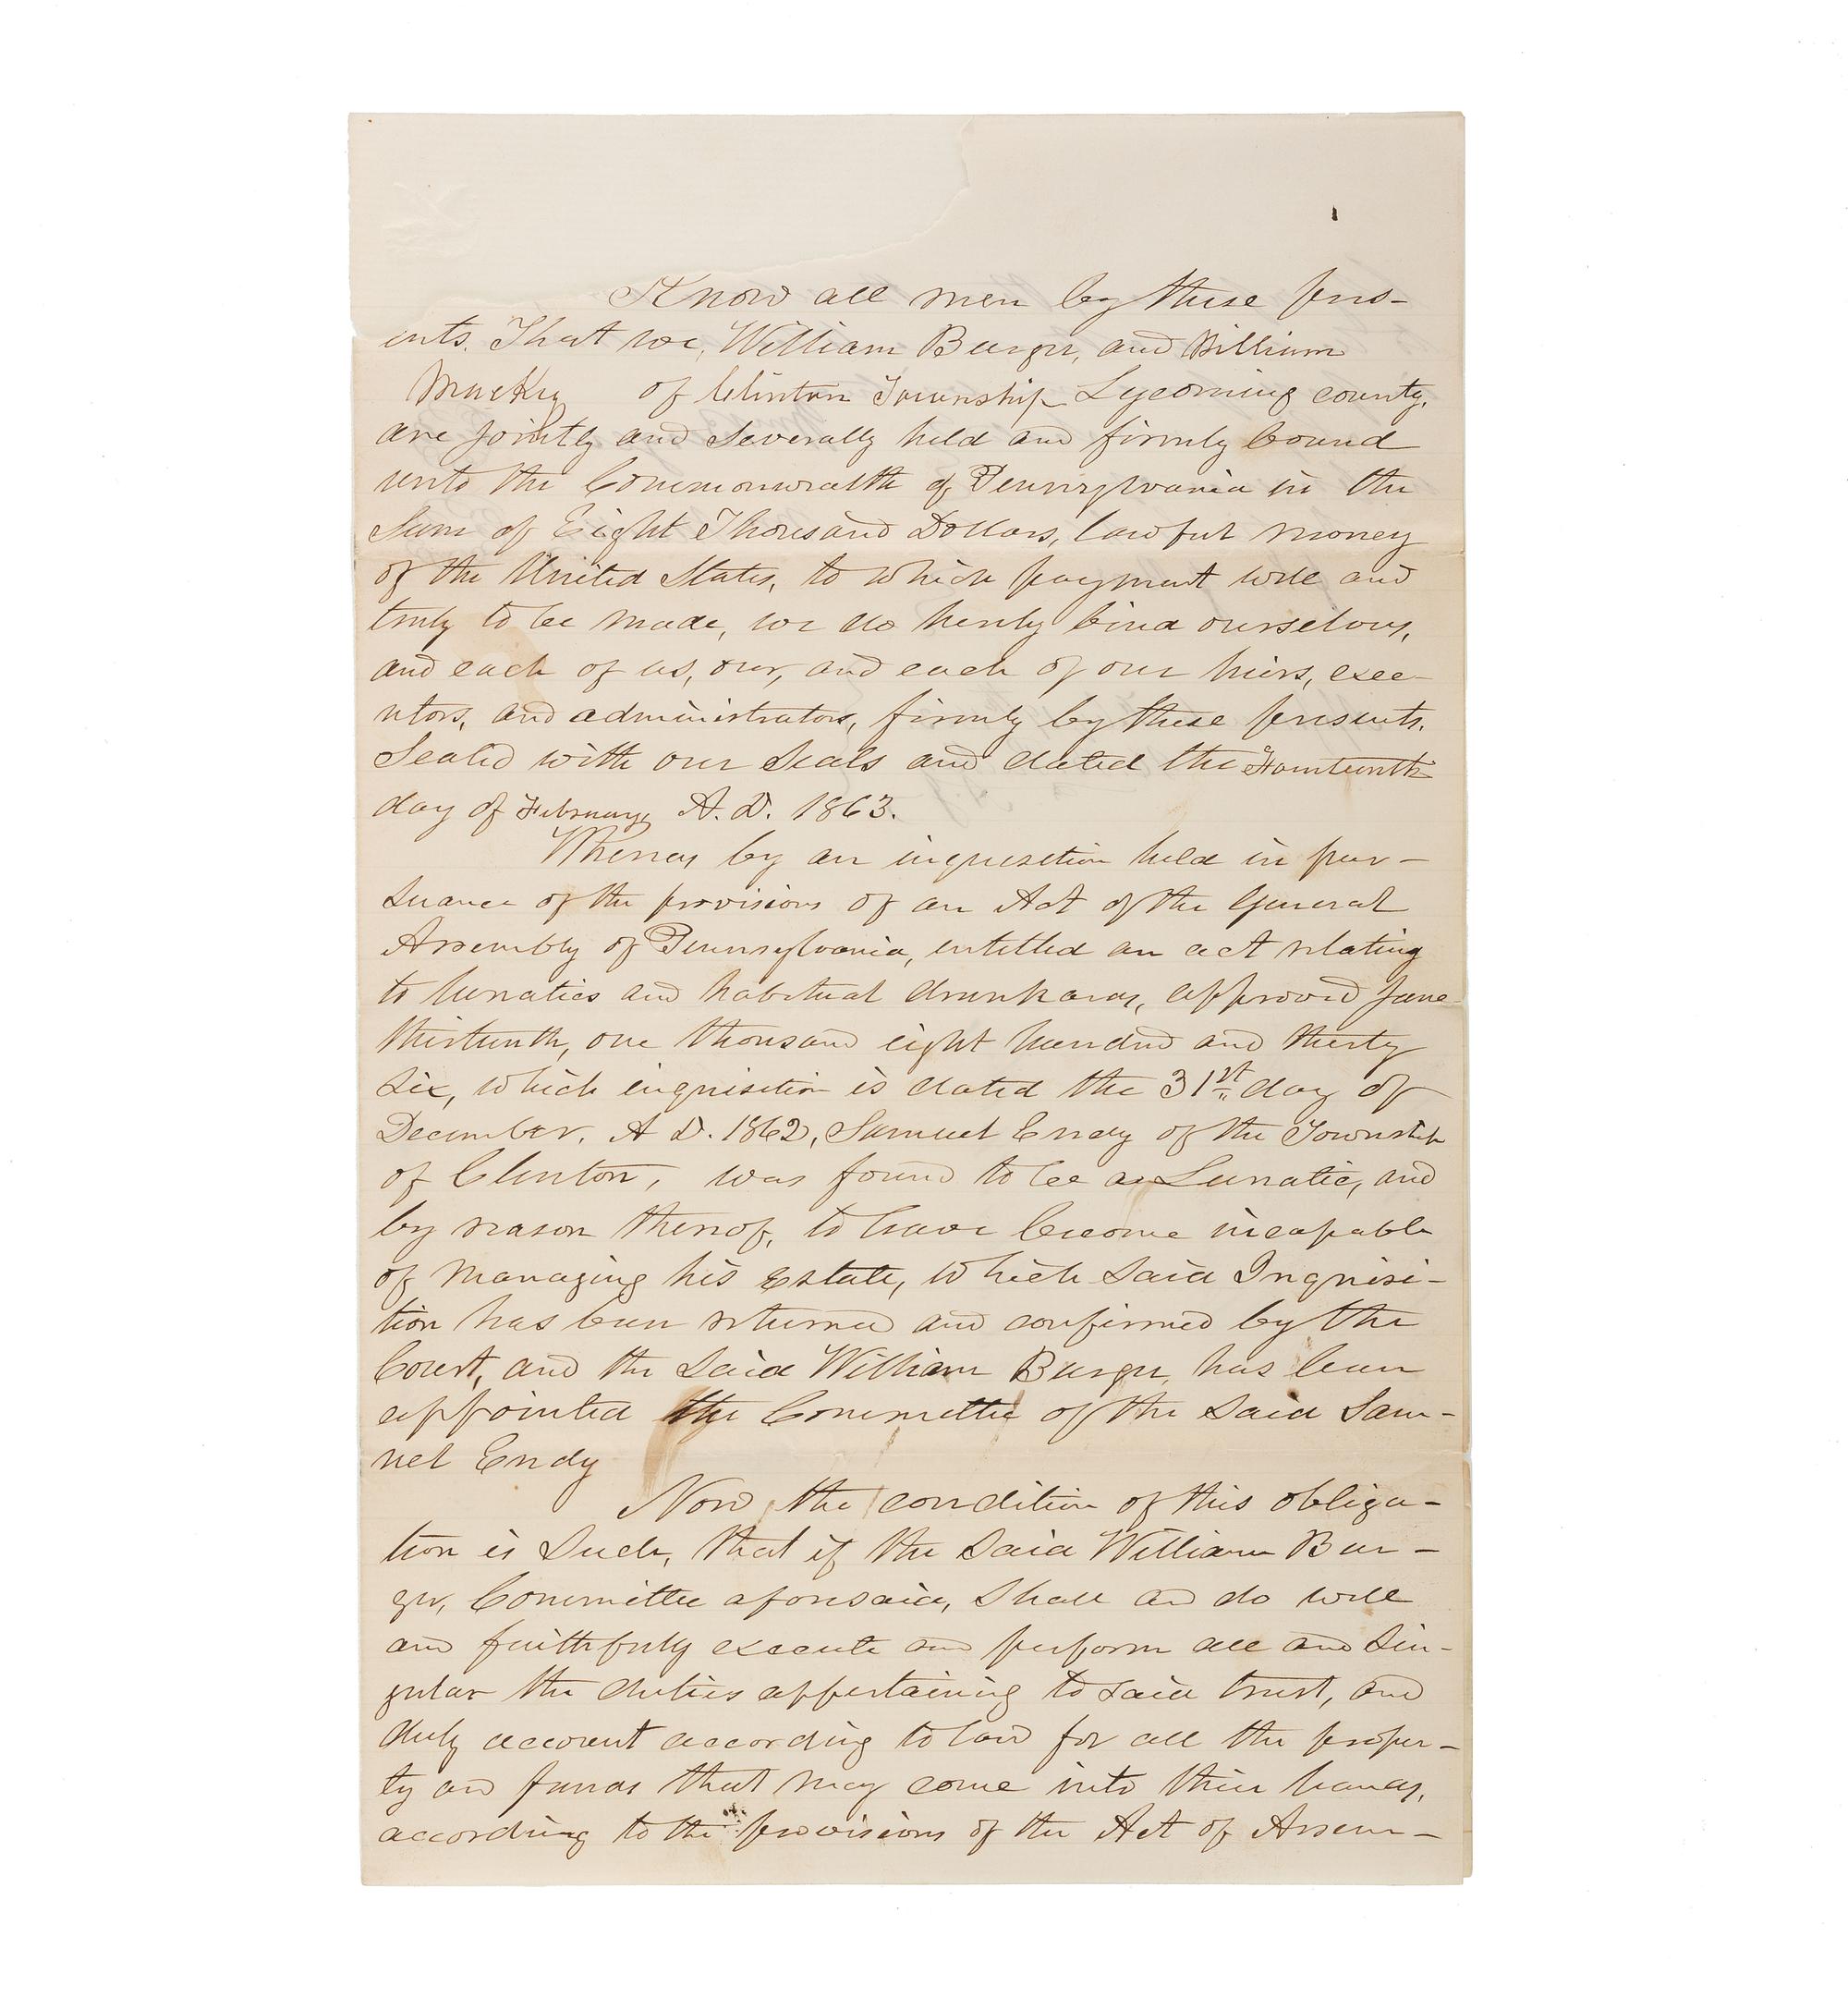 Know all men by these pres-
ents. That we, William Burger, and William
Mackey of Clinton Township Lycoming county,
are jointly and severally held and firmly bound
unto the Commonwealth of Pennsylvania in the
Sum of Eight Thousand Dollars, lawful money
of the United States, to which payment well and
truly to be made, we do hereby bind ourselves,
and each of us, our, and each of our heirs, exec-
utors, and administrators, firmly by these presents.
Sealed with our Seals and dated the Fourteenth
day of February A. D. 1863.
Whereas by an inquisition held in pur-
suance of the provisions of an Act of the General
Assembly of Pennsylvania, entitled an act relating
to lunatics and habitual drunkards, approved June
thirteenth, one thousand eight hundred and thirty
six, which inquisition is dated the 31st day of
December, A D. 1862, Samuel Endy of the Township
of Clinton, was found to be a Lunatic, and
by reason thereof, to have become incapable
of managing his Estate, which said Inquisi-
tion has been returned and confirmed by the
Court, and the said William Burger has been
appointed the Committee of the said Sam-
uel Endy
Now the condition of this obliga-
tion is Such, that if the said William Bur-
ger, Committee aforesaid, Shall and do well
and faithfuly execute and perform all and Sin-
gular the duties appertaining to said trust, and
duly account according to law for all the proper-
ty and funds that may come into their hands,
according to the provisions of the Act of Assem-